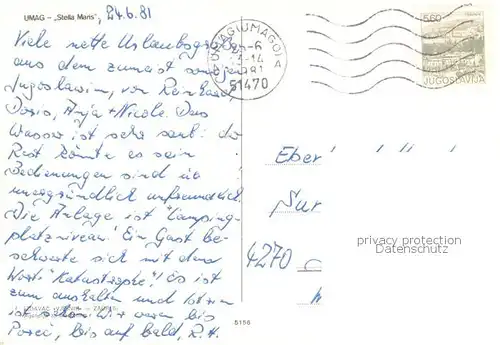 UMAG - „Stella Maris", 24.6.81
Viele nette Urlaubsgrüße
aus dem zumeist sonnigen
Jugoslawien, von Reinhard,
Doris, Anja + Nicole. Das
Wasser ist sehr salz. der
Rest könnte es sein
Bedienungen sind
unergründlich unfreundlich.
Die Anlage ist "Camping-
platzniveau". Ein Gast be-
schwerte sich mit dem
Wort "Katastrophe"! Es ist
zum aushalten und
ist schön. Wir waren bis
Poreč, bis auf bald, R. H.
5156
UMAG UMAGO
51470
5.60
JUGOSLAVIJA
Eber
Sur
4270
privacy protection
DATENSCHUTZ